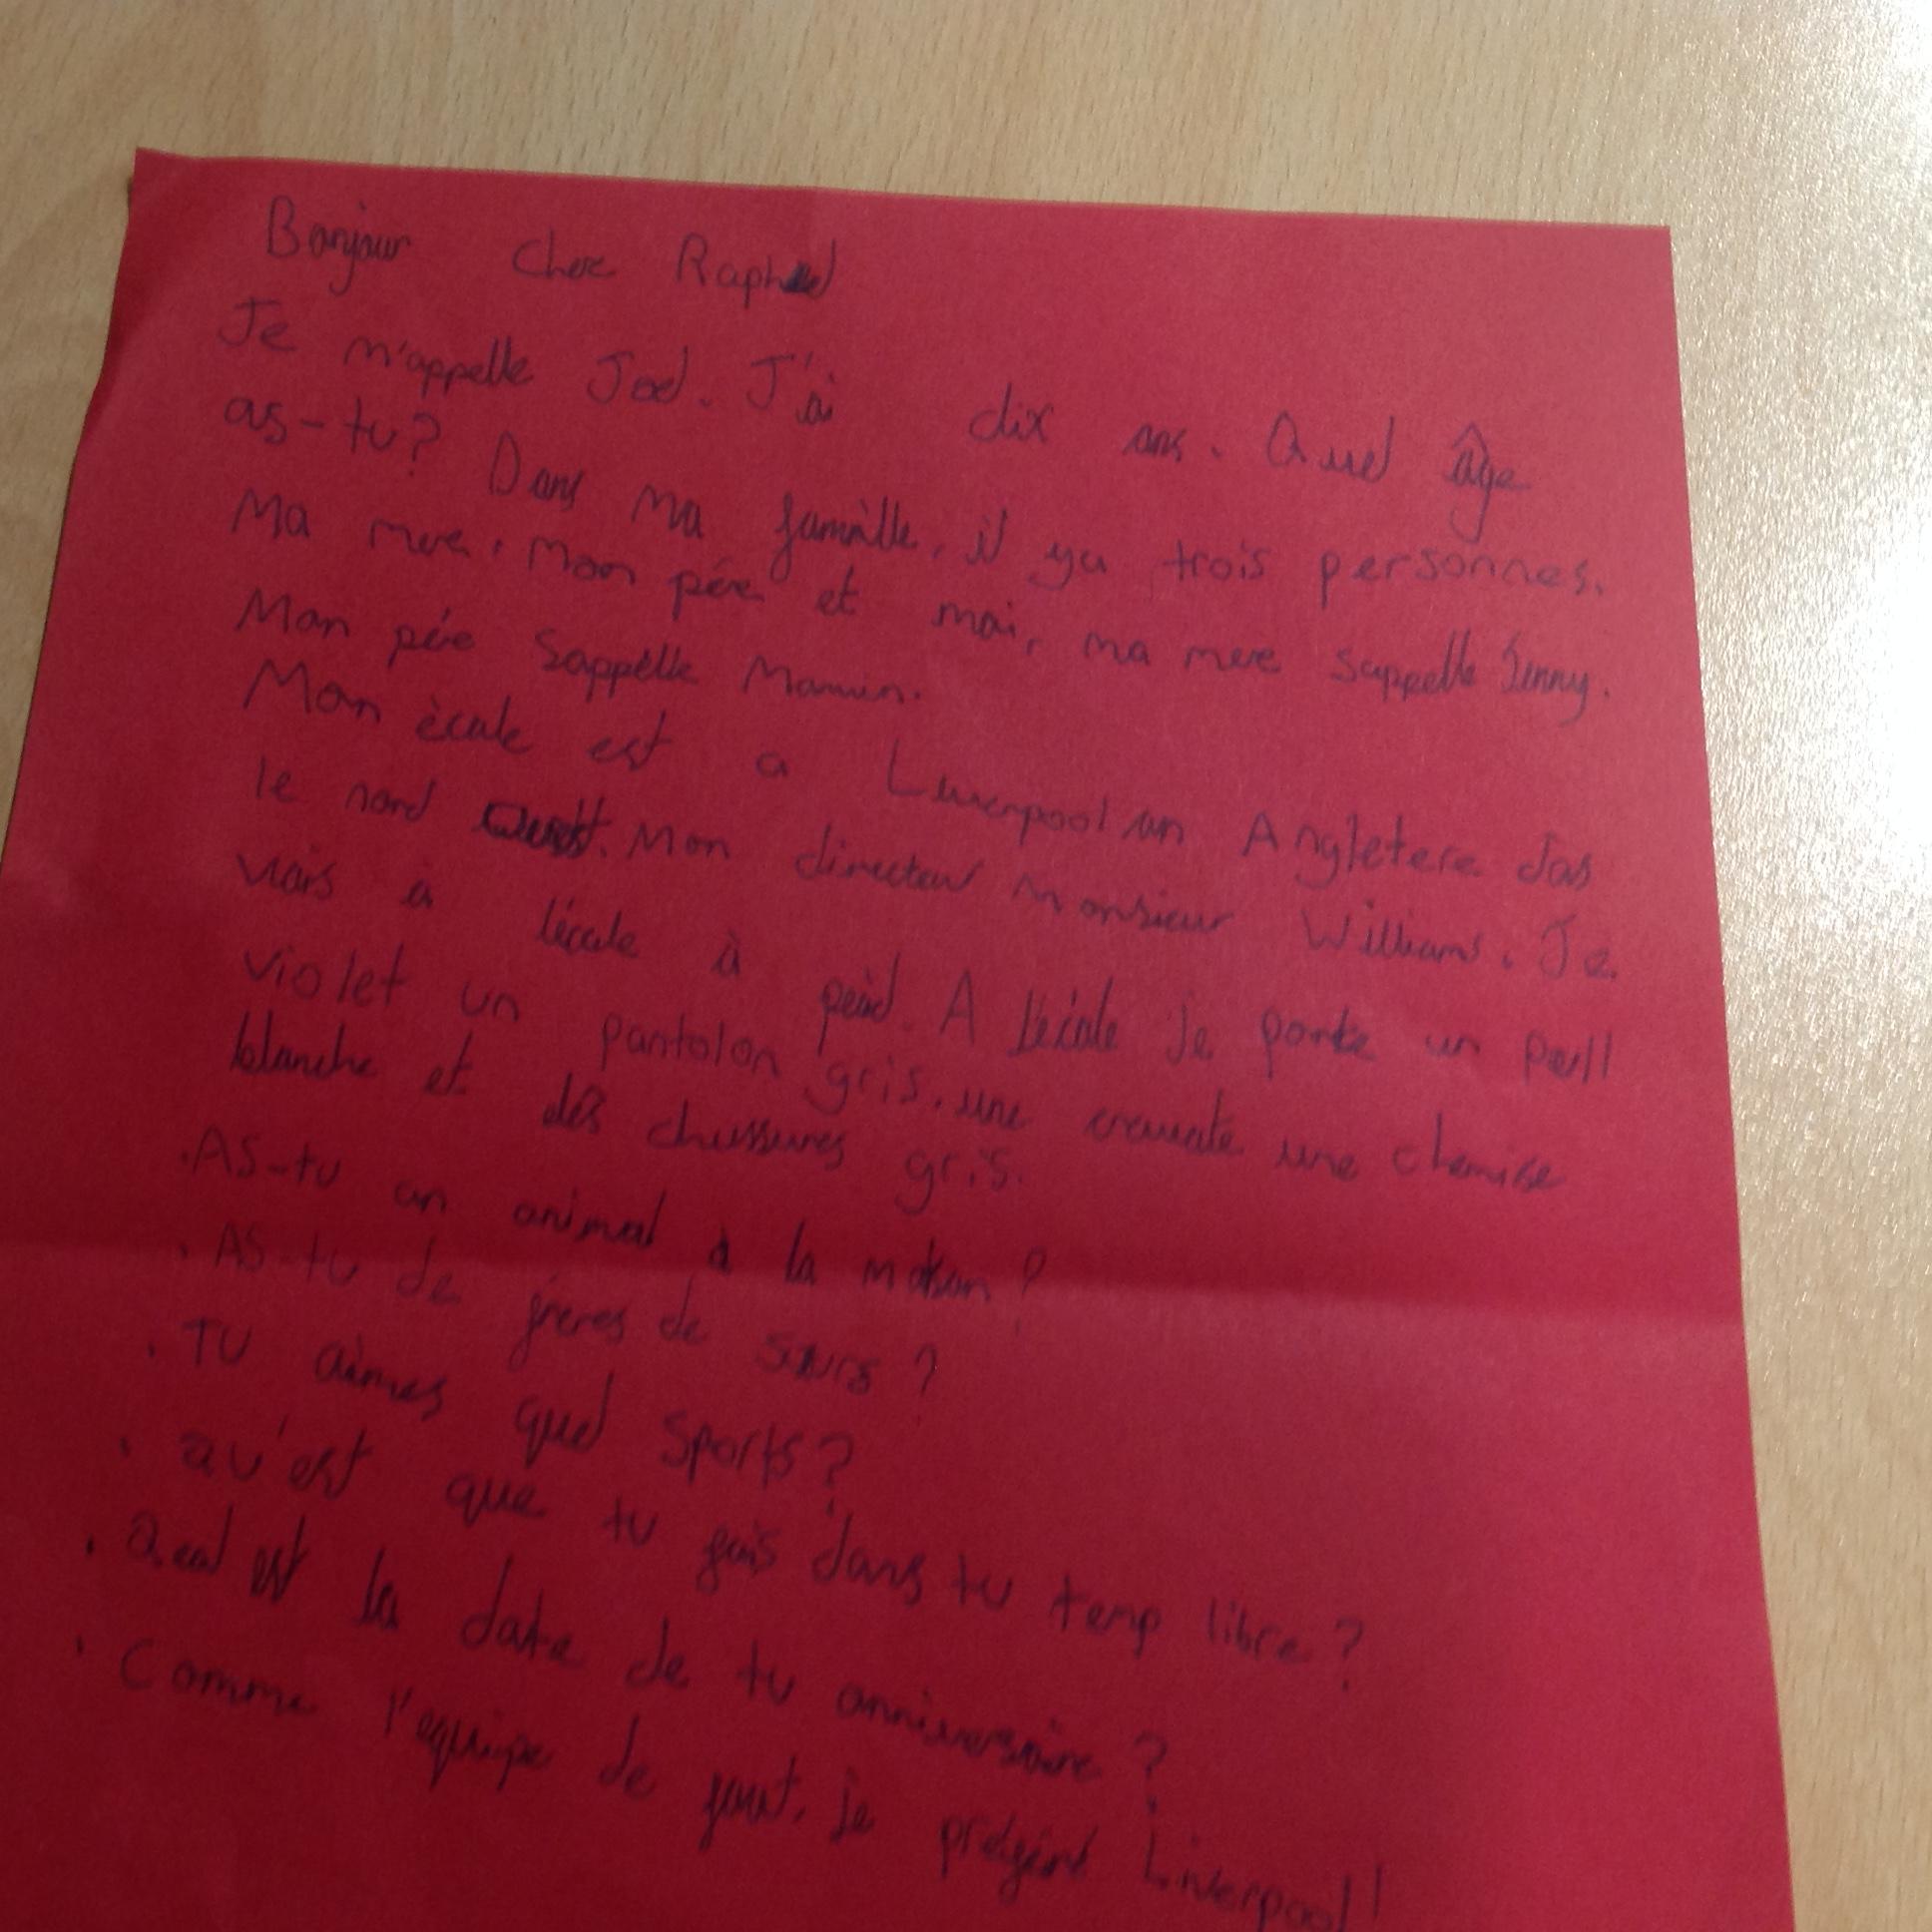 Bonjour cher Raphael
Je m'appelle Joel. J'ai dix ans. Quel âge
as-tu? Dans ma famille, il ya trois personnes.
Ma mere, Mon pére et moi, ma mere sappelle Jenny.
Mon pére Sappelle
Mon école est a Liverpool an Angletere das
le nord Ouest. Mon directeur Monsieur Williams. Je
vais à l'école à peid. A l'école je porte un pull
violet un pantolon gris, une cravate une chemise
blanche et des chussures gris.
. AS-tu un animal à la maison?
. AS-tu de freres de sœurs?
. TU aimes quel sports?
. qu'est que tu fais dans tu temp libre?
. Quel est la date de tu anniversaire?
. Comme l'equipe de foot, je Liverpool!